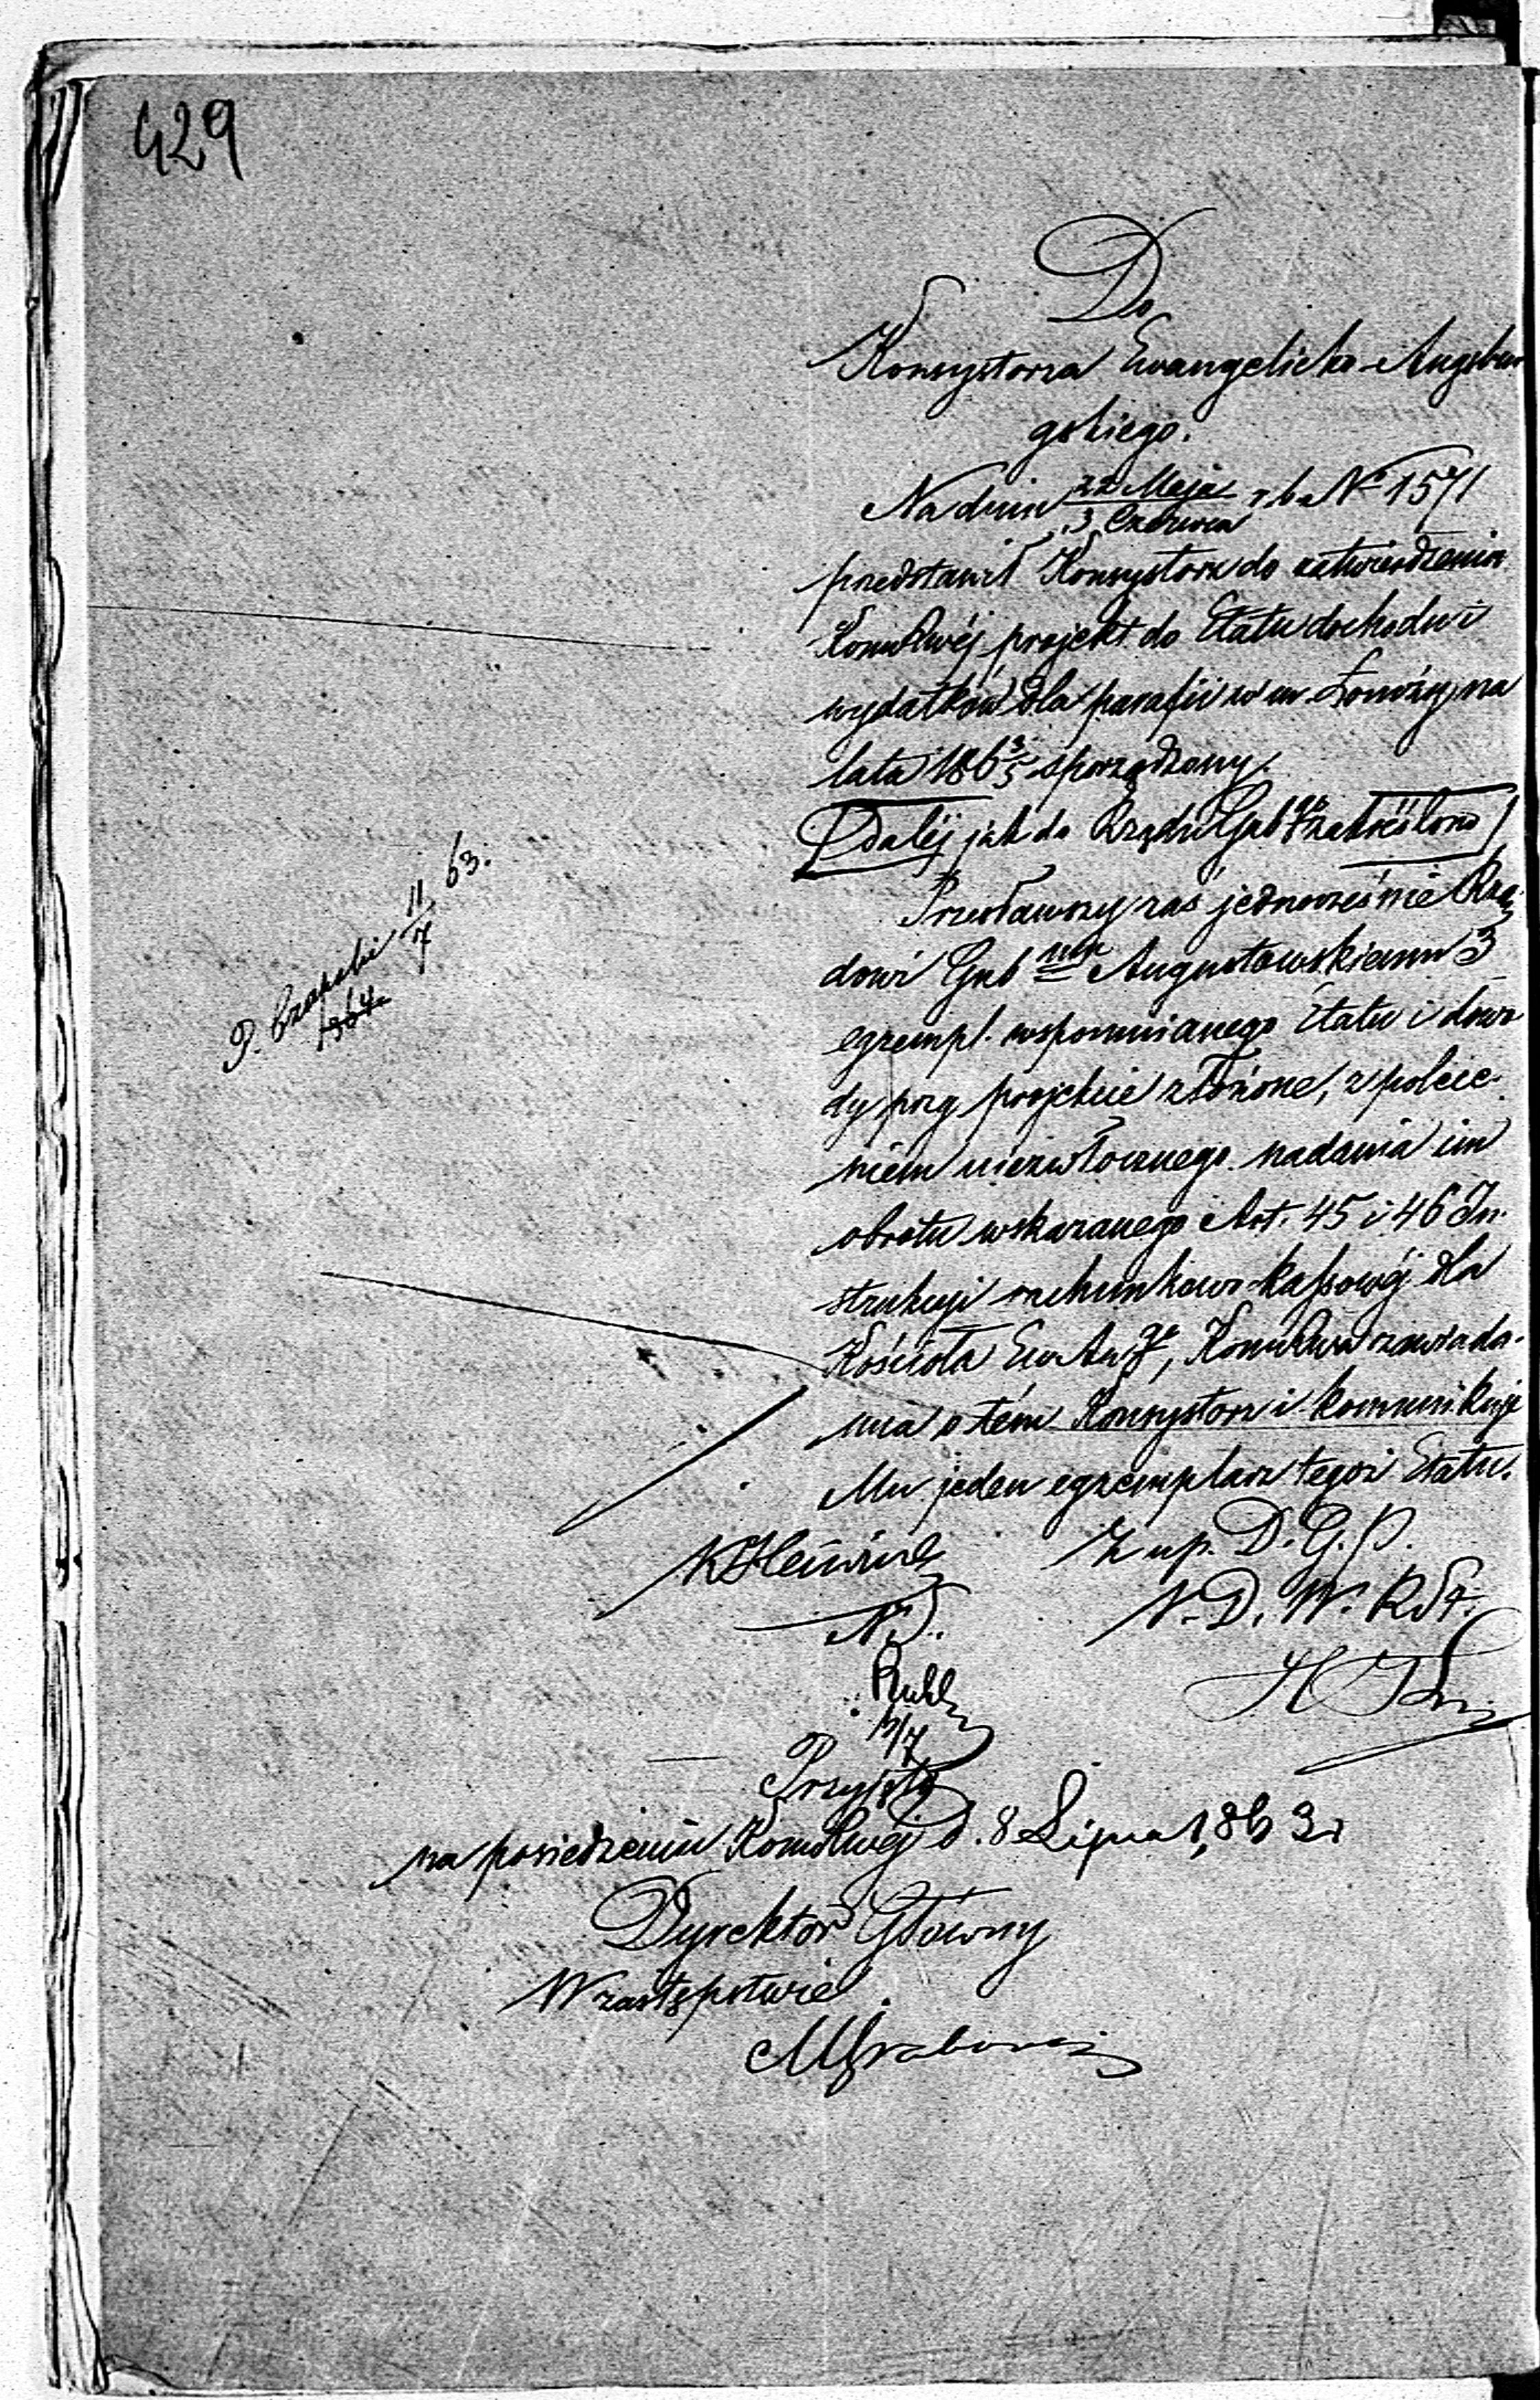 429
Do
Konsystorza Ewangelicko-Augsbur
gskiego.
Na dniu 22 Maja / 3 Czerwca r. b. a N 1571
przedstawił Konsystorz do zatwierdzenia
projekt do Etatu dochodu i
wydatków dla parafii w m. Łomży na
lata 186 3/5 sporządzony.
(Dalej jak do Rządu Gub go zakreślono)
Przesławszy zaś jednocześnie Rzą
dowi Gub mu Augustowskiemu 3
egzempl. wspomnianego Etatu i dowo
dy przy projekcie złożone, z polece-
niem niezwłocznego nadania im
obrotu wskazanego Art. 45 i 46 In-
strukcji rachunkowo-kassowej dla
Kościoła Ew. Au go, zawiada-
mia o tém Konsystorz i komunikuje
Mu jeden egzemplarz tegoż Etatu.
P. Czapski 11/7 63.
1364.
Z up. D. G. P.
N. D.
N. D. W.
Przyjęto
na posiedzeniu d. 8 Lipca 1863 r
Dyrektor Główny
W zastępstwie